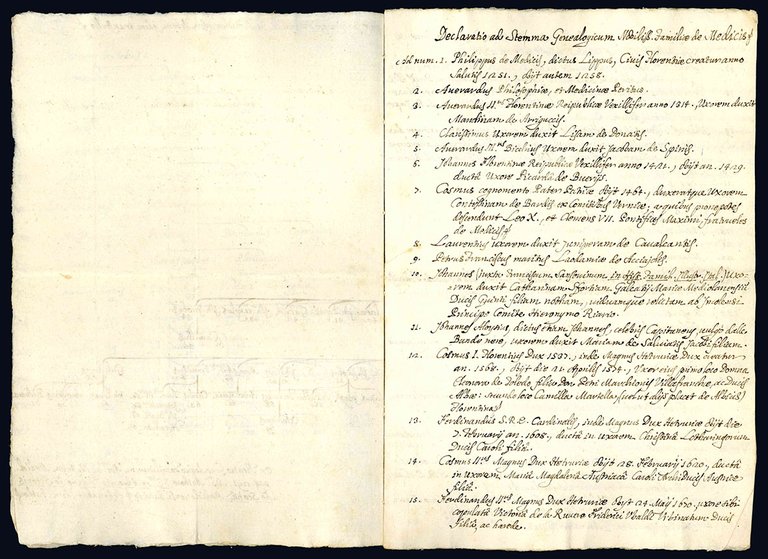 Declaratio ad Stemma Genealogicum Nobiliss. Familiæ de Medicis
Ad num. 1. Philippus de Medicis, dictus Lippus, Civis Florentiæ creatur anno
Salutis 1251., obijt autem 1258.
2. Averardus Philosophiæ, et Medicinæ Peritus.
3. Averardus II.us Florentinæ Reipublicæ Vexillifer anno 1314. Uxorem duxit
Mandinam de Arrigucijs.
4. Clarissimus Uxorem duxit Lisam de Donatis.
5. Averardus III.us Bicchius Uxorem duxit Jacobam de Spinis.
6. Johannes Florentinæ Reipublicæ Vexillifer anno 1421., obijt an. 1429.
ducta Uxore Picarda de Buerijs.
7. Cosmus cognomento Pater Patriæ obijt 1464., duxeratque Uxorem
Contessinam de Bardis ex Comitibus Verniæ; a quibus pronepotes
descendunt Leo X., et Clemens VII. Pontifices Maximi, fratrueles
de Medicis
8. Laurentius uxorem duxit Juniperam de Cavalcantis.
9. Petrus Franciscus maritus Laodamiæ de Acciajolis.
10. Johannes (juxta Franciscum Sansovinum in Hist. Famil. Illustr. Ital.) Uxo-
rem duxit Catharinam Sfortiam Galeatij Mariæ Mediolanensis
Ducis Quinti filiam notham, viduamque relictam ab Imolensi
Principe Comite Hieronymo Riario.
11. Johannes Aloysius, dictus etiam Johannes, celebris Capitaneus, vulgo delle
Bande nere, uxorem duxit Mariam de Salviatis Jacobi filiam.
12. Cosmus I. Florentiæ Dux 1537., inde Magnus Hetruriæ Dux creatur
an. 1569., obijt die 21 Aprilis 1574., Uxor eius primo loco Domna
Eleonora de Toledo, filia Don Petri Marchionis Villafranchæ, ac Ducis
Albæ: secundo loco Camilla Martella, (vel ut alijs placet de Albicis)
Florentina
13. Ferdinandus S.R.E. Cardinalis, inde Magnus Dux Hetruriæ obijt die
7. Februarij an. 1608., ducta in uxorem Christina Lotharingorum
Ducis Caroli filia.
14. Cosmus II.us Magnus Dux Hetruriæ obijt 28. Februarij 1620., ducta
in uxorem Maria Magdalena Austriaca Caroli Archiducis Austriæ
filia.
15. Ferdinandus II.us Magnus Dux Hetruriæ obijt 24. Maij 1670., uxore sibi
copulata Victoria de la Ruvere Friderici Ubaldi Urbinatum Ducis
filia, ac hærede.